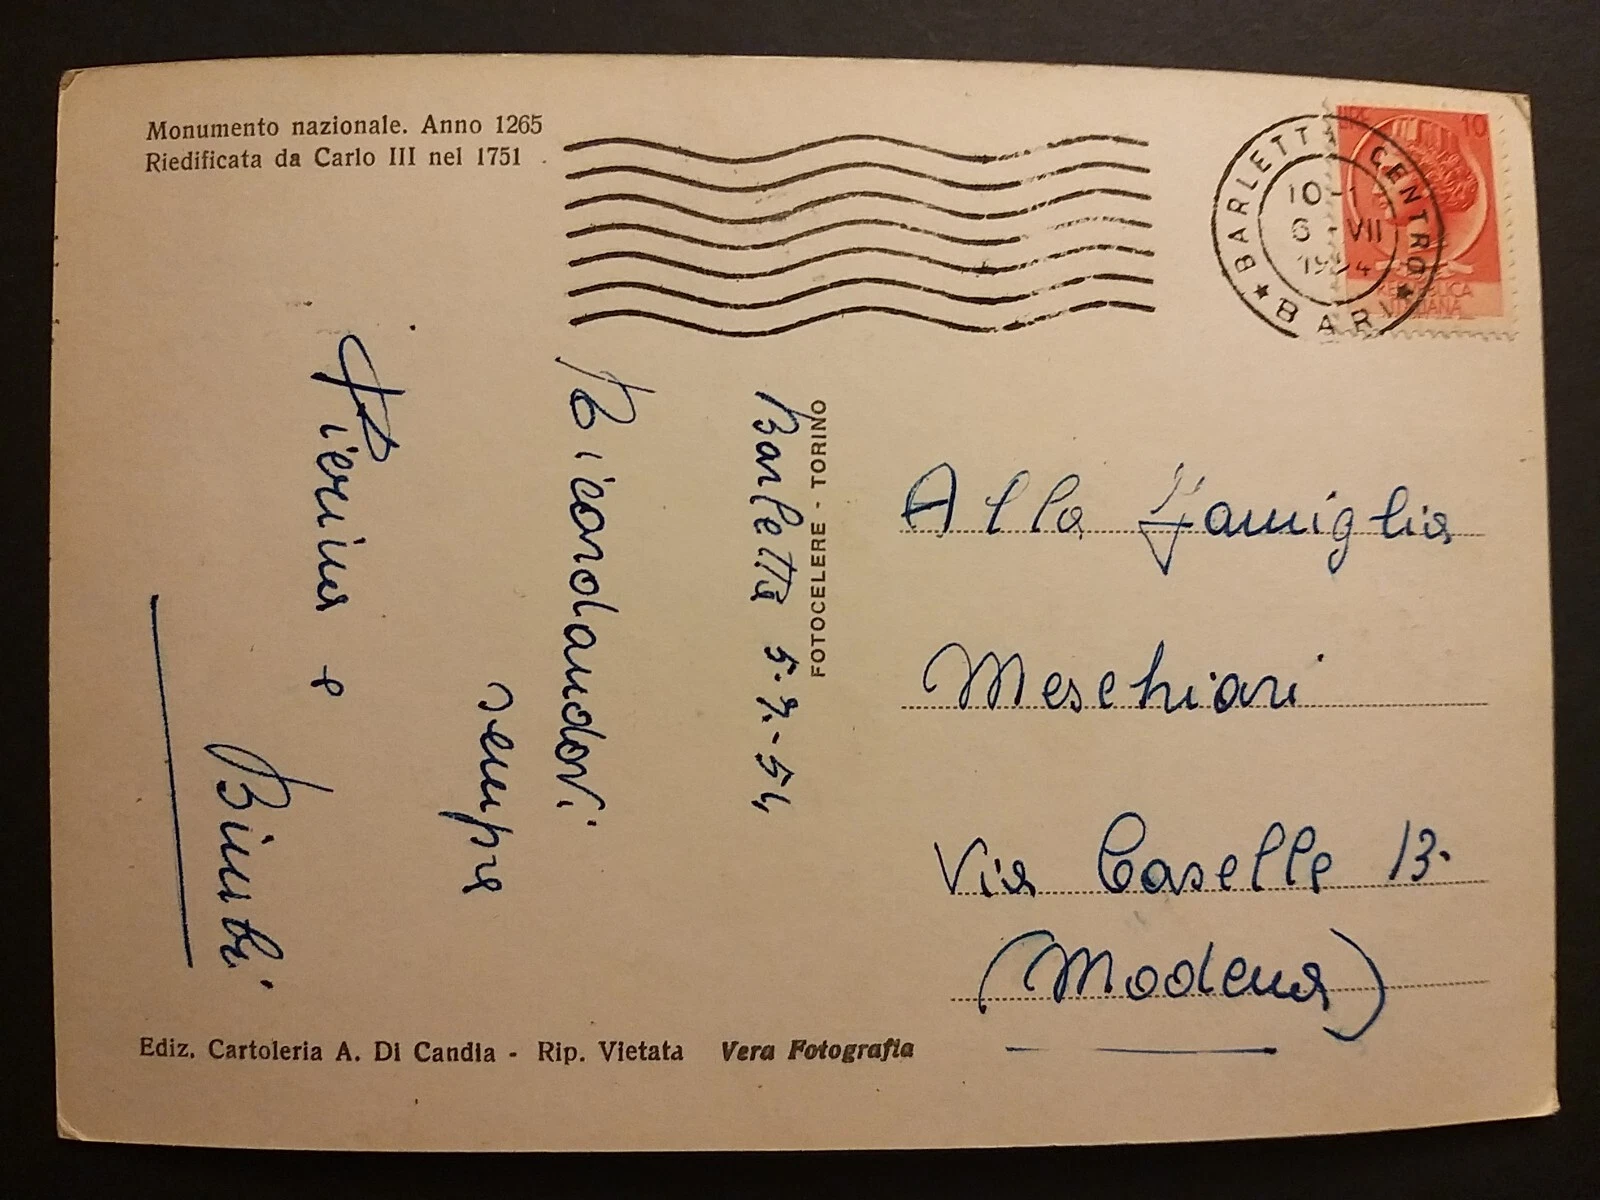 Monumento nazionale. Anno 1265
Riedificata da Carlo III nel 1751
BARLETTA CENTRO
10
6 - VII
1954
BARI
LIRE 10
REPUBBLICA
ITALIANA
Barletta 5-7-54
Ricordandovi
sempre
Pierina e
Bimbi
FOTOCELERE - TORINO
Alla Famiglia
Meschiari
Via Caselle 13.
(Modena)
Ediz. Cartoleria A. Di Candia - Rip. Vietata Vera Fotografia